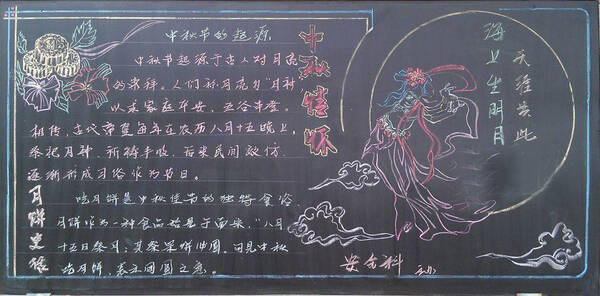 中秋节的起源
中秋节起源于古人对月亮
的崇拜。人们称月亮为“月神”
以求家庭平安，五谷丰登。
相传，古代帝皇每年在农历八月十五晚上，
祭祀月神，祈祷丰收，后来民间效仿，
逐渐形成习俗作为节日。
月饼更缘
吃月饼是中秋佳节的独特食俗
月饼作为一种食品始见于南宋，“八月
十五日祭月，其祭果饼必圆”。可见中秋
吃月饼，表示团圆之意。
中秋情怀
海上生明月
天涯共此
安全科